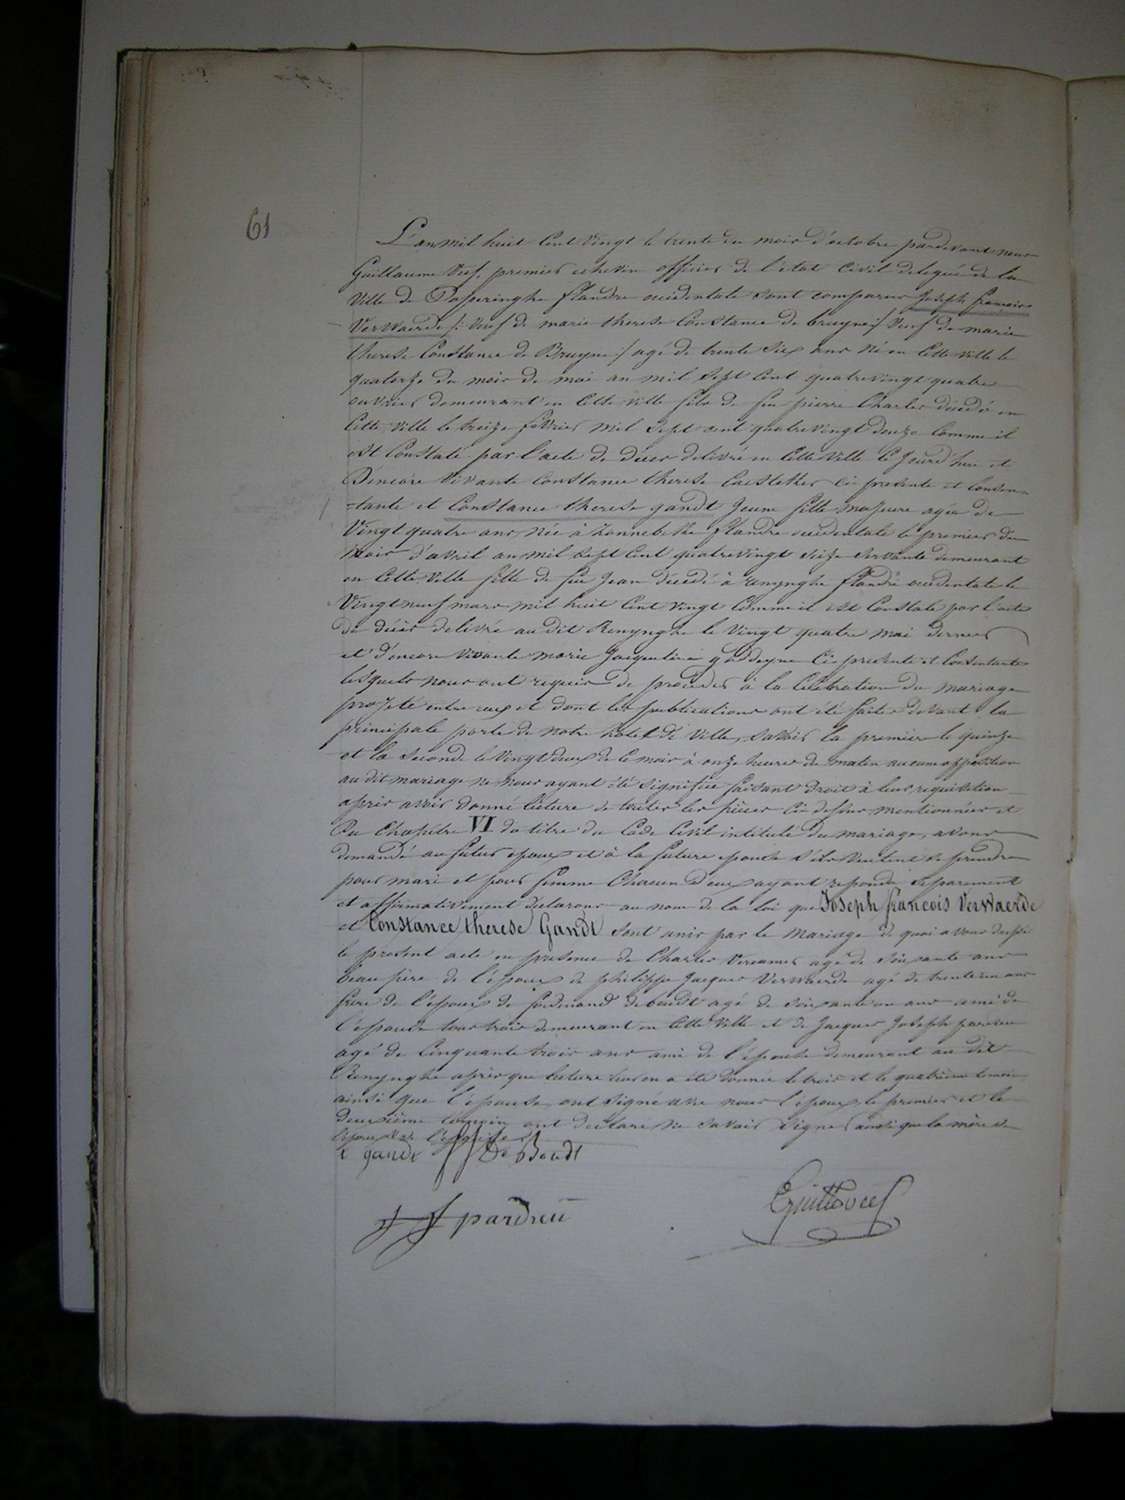 61
L'an mil huit cent vingt le trente du mois d'octobre pardevant nous
Guillaume premier echevin officier de l'état civil delegué de la
ville de Poperinghe flandre occidentale sont comparus Joseph francois
Verwaerde /: veuf de marie therese Constance de bruyne :/ veuf de marie
therese Constance de Bruyne :/ agé de trente six ans né en cette ville le
quatorze du mois de mai an mil sept cent quatrevingt quatre
ouvrier demeurant en cette ville fils de feu pierre Charles décédé en
cette ville le treize fevrier mil sept cent quatrevingt douze comme il
est constaté par l'acte de décès delivré en cette ville ce jourd'hui et
d'encore vivante Constance therese ci presente et consen-
-tante et Constance therese gandt jeune fille majeure agée de
vingt quatre ans née à Zonnebeke flandre occidentale le premier du
mois d'avril an mil sept cent quatrevingt seize servante demeurant
en cette ville fille de feu Jean décédé à renynghe flandre occidentale le
vingt neuf mars mil huit cent vingt comme il est constaté par l'acte
de décès delivré au dit Renynghe le vingt quatre mai dernier
et d'encore vivante marie Jacqueline ci presente et consentante
lesquels nous ont requis de proceder à la celebration du mariage
projeté entre eux et dont les publications ont été faites devant la
principale porte de notre hotel de ville, savoir la premiere le quinze
et la seconde le vingt deux de ce mois à onze heures du matin aucune opposition
au dit mariage ne nous ayant été signifiée faisant droit à leur requisition
après avoir donné lecture de toutes les pièces ci dessus mentionnées et
du chapitre VI du titre du Code Civil intitulé du mariage, avons
demandé au futur epoux et à la future epouse s'ils veulent se prendre
pour mari et pour femme chacun d'eux ayant repondu separement
et affirmativement declarons au nom de la loi que Joseph francois Verwaerde
et Constance therese Gandt sont unis par le mariage de quoi avons dressé
le present acte en presence de Charles agé de soixante ans
beau père de l'époux de philippe Jacques Verwaerde agé de trente ans
frère de l'époux de ferdinand de beudt agé de soixante ans ami de
l'epouse tous trois demeurant en cette ville et de Jacques Joseph pardieu
agé de cinquante trois ans ami de l'épouse demeurant au dit
Renynghe après que lecture leur en a été donnée le trois et le quatrieme temoin
ainsi que l'epouse, ont signé avec nous l'epoux le premier et le
deuxième temoin ont declaré ne savoir signer ainsi que la mère de
l'epoux et de l'epouse
C gandt De Beudt
J J pardieu